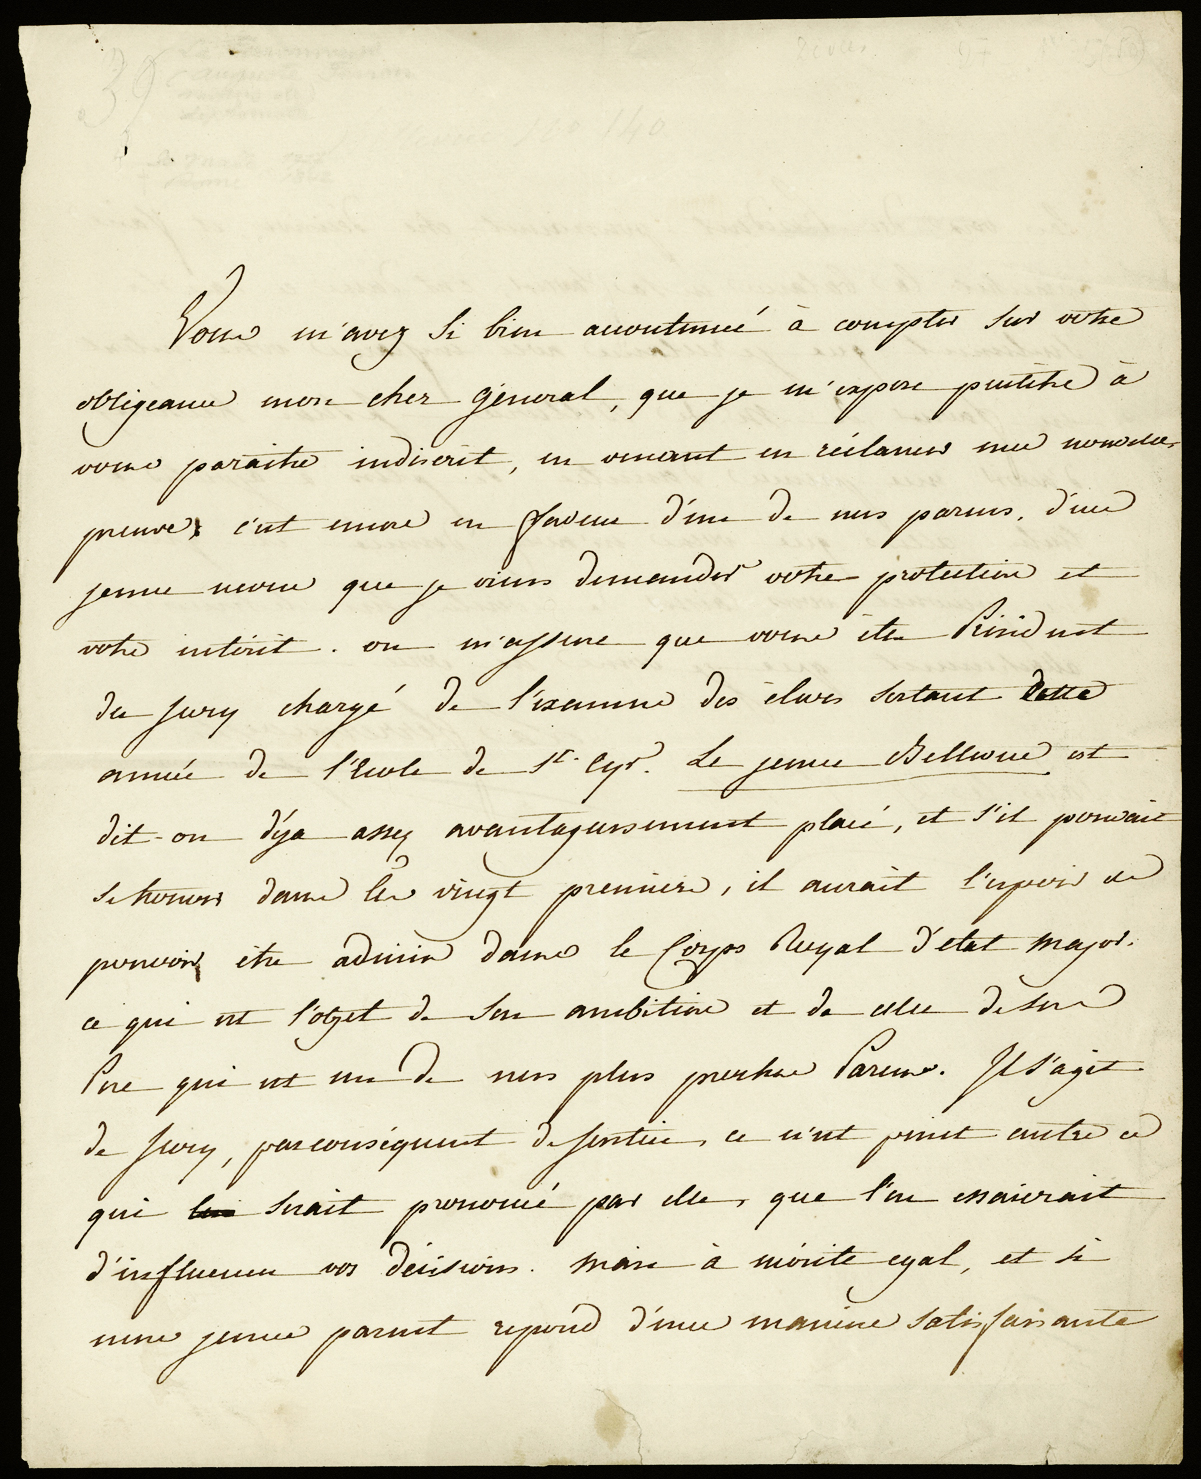 Vous m'avez si bien accoutumé à compter sur votre
obligeance mon cher général, que je m'expose peutêtre à
vous paraitre indiscret, en venant en réclamer une nouvelle
preuve, c'est encore en faveur d'un de mes parens, d'un
jeune neveu que je viens demander votre protection et
votre intérêt. on m'assure que vous êtes Président
du Jury chargé de l'examen des élèves sortant cette
année de l'Ecole de St. Cyr. Le jeune Bellecour est
dit-on déja assez avantageusement placé, et s'il pouvait
se trouver dans les vingt premiers, il aurait l'espoir de
pouvoir être admis dans le Corps Royal d'état major.
ce qui est l'objet de son ambition et de celle de son
Père qui est un de mes plus proches Parens. Il s'agit
de Jury, parconséquent de justice, ce n'est point contre ce
qui serait prononcé par elle, que l'on essaierait
d'influencer vos décisions. mais à mérite egal, et si
mon jeune parent repond d'une manière satisfaisante